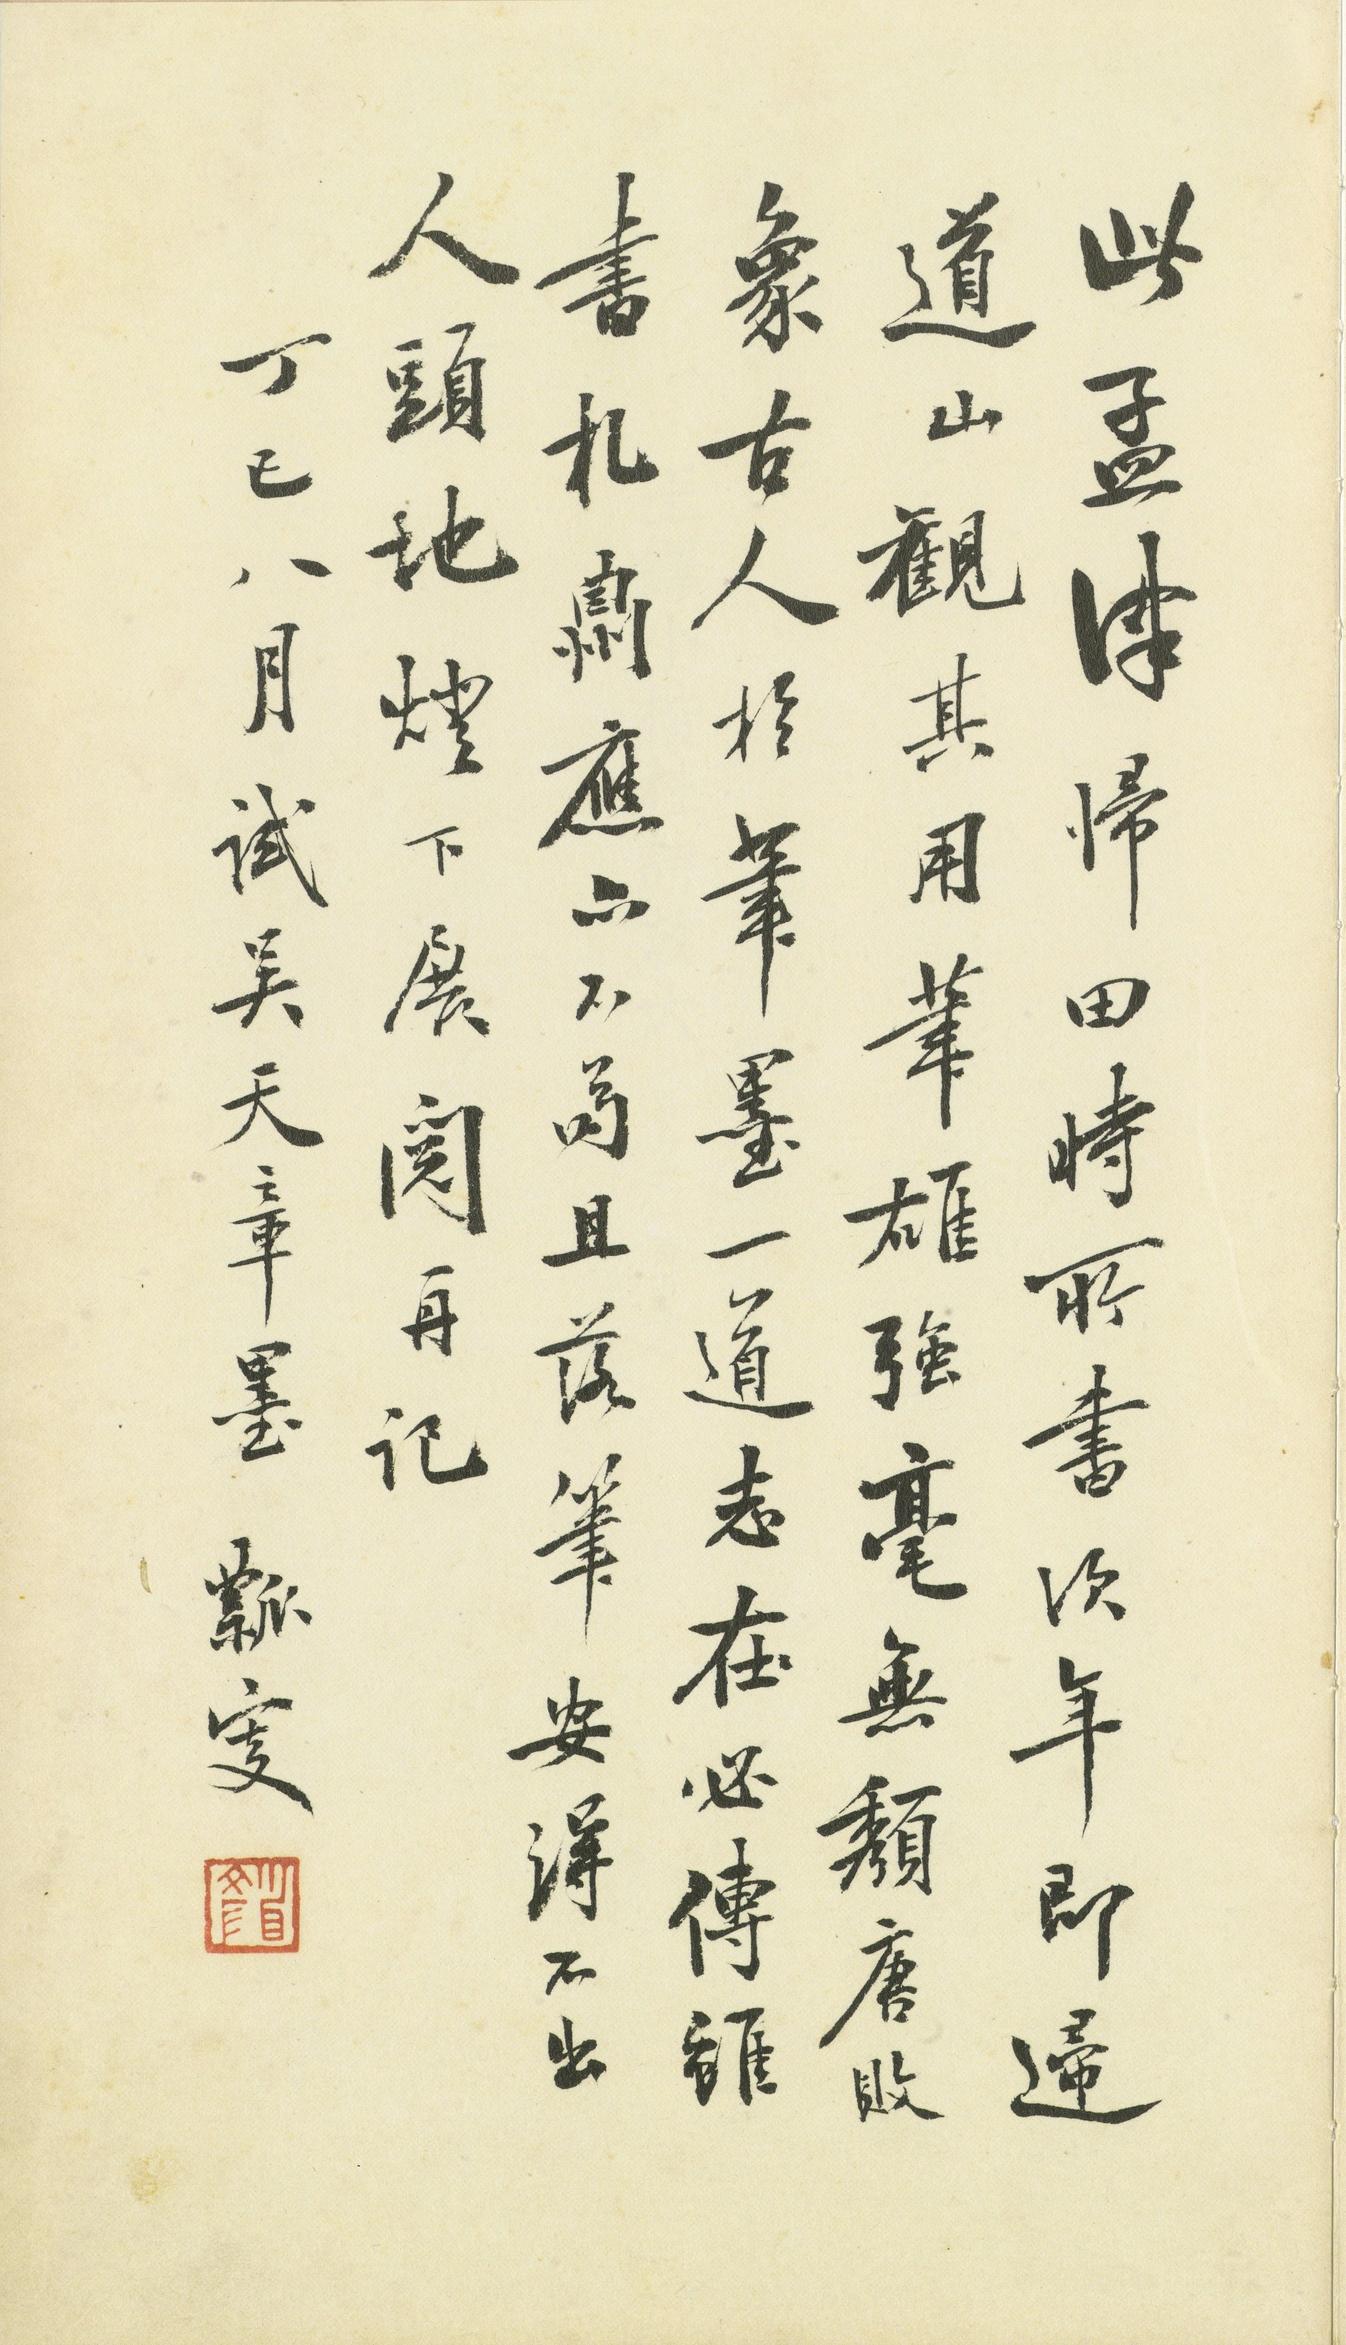 此孟津歸田時所書次年即歸
道山觀其用筆雄強毫無頹唐敗
象古人於筆墨一道志在必傳雖
書札肅應亦不苟且落筆安得不出
人頭地燈下展閱再記
丁巳八月試吳天章墨 瓢叟